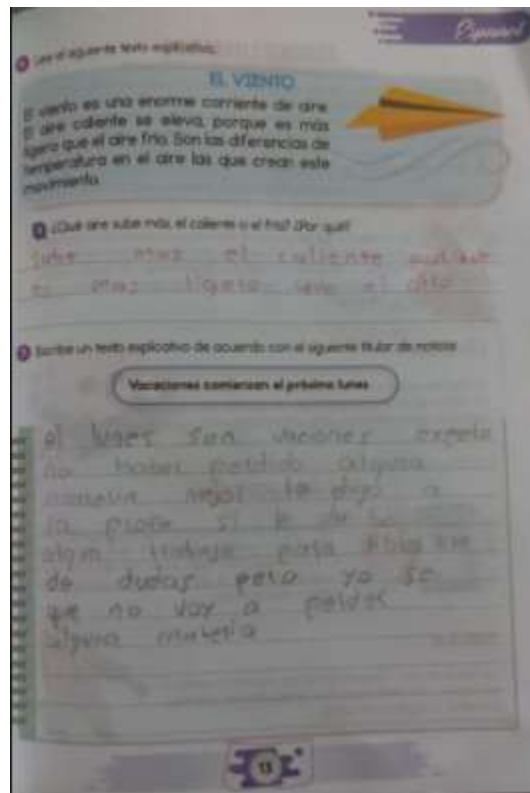 Español
Lee el siguiente texto explicativo.
EL VIENTO
El viento es una enorme corriente de aire.
El aire caliente se eleva, porque es más
ligero que el aire frío. Son las diferencias de
temperatura en el aire las que crean este
movimiento.
¿Qué aire sube más, el caliente o el frío? ¿Por qué?
sube mas el caliente
es mas ligero que el
Escribe un texto explicativo de acuerdo con el siguiente titular de noticias
Vacaciones comienzan el próximo lunes
el lunes son
no haber perdido alguna
mejor le digo a
la profe si le
algun trabajo para
de dudas pero yo se
que no voy a perder
alguna materia
13